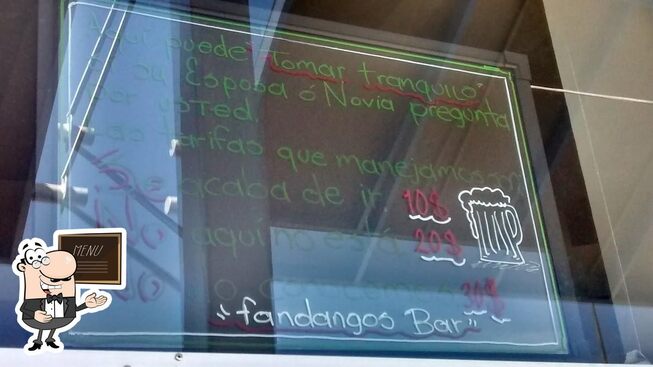 Aquí puede "Tomar tranquilo"
si su Esposa ó Novia pregunta
por usted.
Las tarifas que manejamos son
"Se acaba de ir 10$
"No" aquí no está 20$
No lo conocemos 30$
"fandangos Bar"
MENU